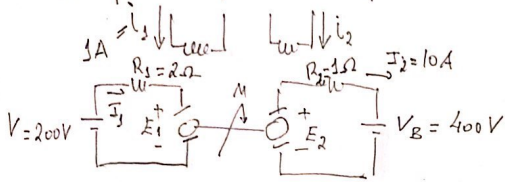 1A = i₁
i₂
R₁=2Ω
R₂=1Ω
I₂=10A
I₁
M
V=200V
E₁
+
-
+
E₂
-
V_B = 400V